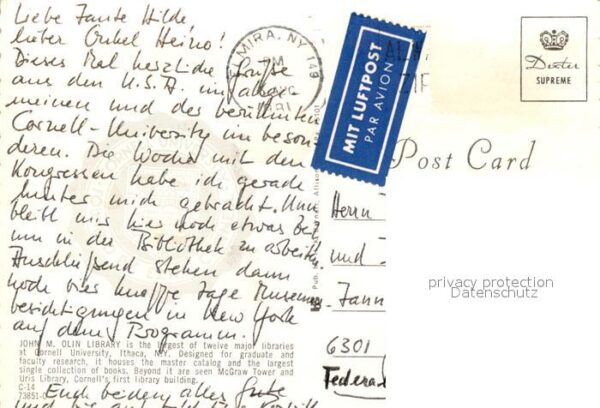 Liebe Tante Hilde,
lieber Onkel Heino!
Dieses Mal herzliche Grüße
aus den U.S.A. im allge-
meinen und der berühmten
Cornell-University im beson-
deren. Die Woche mit den
Kongressen habe ich gerade
hinter mich gebracht. Nun
bleibt mir hier noch etwas Zeit
um in der Bibliothek zu arbeiten.
Anschließend stehen dann
noch vier knappe Tage Museums-
besichtigungen in New York
auf dem Programm.
JOHN M. OLIN LIBRARY is the largest of twelve major libraries
at Cornell University, Ithaca, N.Y. Designed for graduate and
faculty research, it houses the master catalog and the largest
single collection of books. Beyond it are seen McGraw Tower and
Uris Library, Cornell's first library building.
C-14
73851-
Euch beiden alles Gute
und
ELMIRA, NY 149
PM
MIT LUFTPOST
PAR AVION
ZIP
Dexter
SUPREME
Post Card
Herrn
und
privacy protection
Datenschutz
6301
Federa